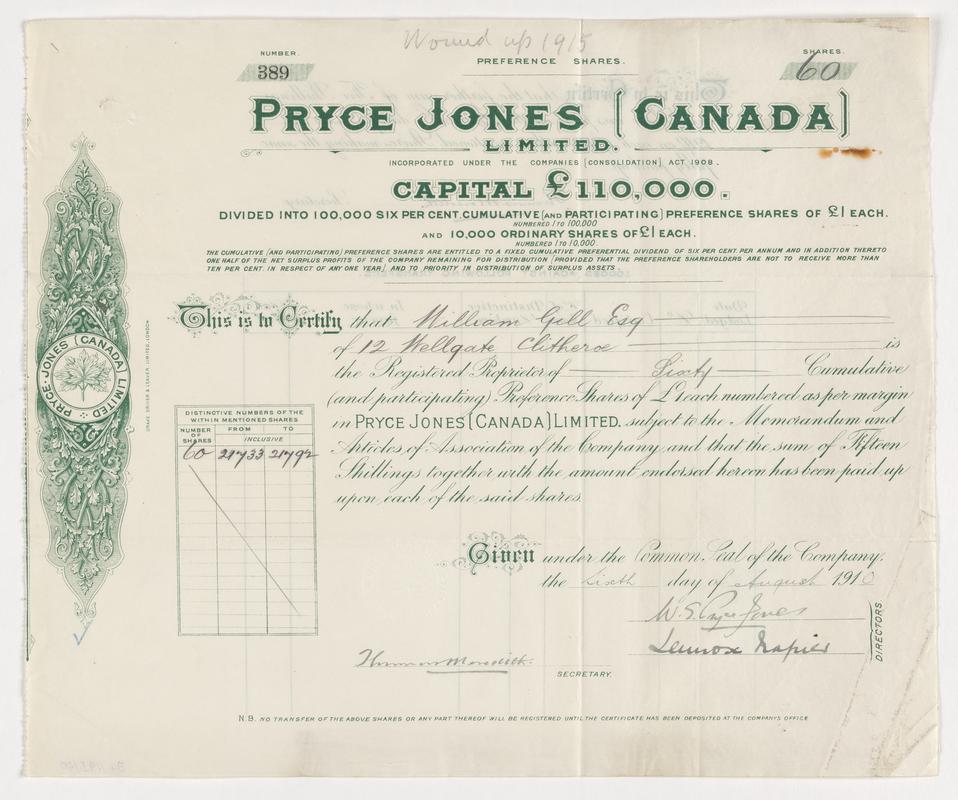 Wound up 1915
NUMBER.
389
PREFERENCE SHARES.
SHARES.
60
PRYCE JONES (CANADA)
LIMITED.
INCORPORATED UNDER THE COMPANIES (CONSOLIDATION) ACT 1908.
CAPITAL £110,000.
DIVIDED INTO 100,000 SIX PER CENT. CUMULATIVE (AND PARTICIPATING) PREFERENCE SHARES OF £1 EACH.
NUMBERED 1 TO 100,000
AND 10,000 ORDINARY SHARES OF £1 EACH.
NUMBERED 1 TO 10,000.
THE CUMULATIVE (AND PARTICIPATING) PREFERENCE SHARES ARE ENTITLED TO A FIXED CUMULATIVE PREFERENTIAL DIVIDEND OF SIX PER CENT. PER ANNUM AND IN ADDITION THERETO
ONE HALF OF THE NET SURPLUS PROFITS OF THE COMPANY REMAINING FOR DISTRIBUTION (PROVIDED THAT THE PREFERENCE SHAREHOLDERS ARE NOT TO RECEIVE MORE THAN
TEN PER CENT. IN RESPECT OF ANY ONE YEAR) AND TO PRIORITY IN DISTRIBUTION OF SURPLUS ASSETS.
This is to Certify that William Gill Esq
of 12 Wellgate Clitheroe is
the Registered Proprietor of Sixty Cumulative
(and participating) Preference Shares of £1 each numbered as per margin
in PRYCE JONES (CANADA) LIMITED. subject to the Memorandum and
Articles of Association of the Company and that the sum of Fifteen
Shillings together with the amount endorsed hereon has been paid up
upon each of the said shares.
PRYCE-JONES (CANADA) LIMITED
DRAKE, DRIVER & LEAVER, LIMITED, LONDON
DISTINCTIVE NUMBERS OF THE
WITHIN MENTIONED SHARES
NUMBER OF SHARES FROM TO
INCLUSIVE
60 21733 21792
Given under the Common Seal of the Company,
the Sixth day of August 1910
W. S. Pryce Jones
Lennox Napier
DIRECTORS
SECRETARY.
N.B. NO TRANSFER OF THE ABOVE SHARES OR ANY PART THEREOF WILL BE REGISTERED UNTIL THE CERTIFICATE HAS BEEN DEPOSITED AT THE COMPANYS OFFICE